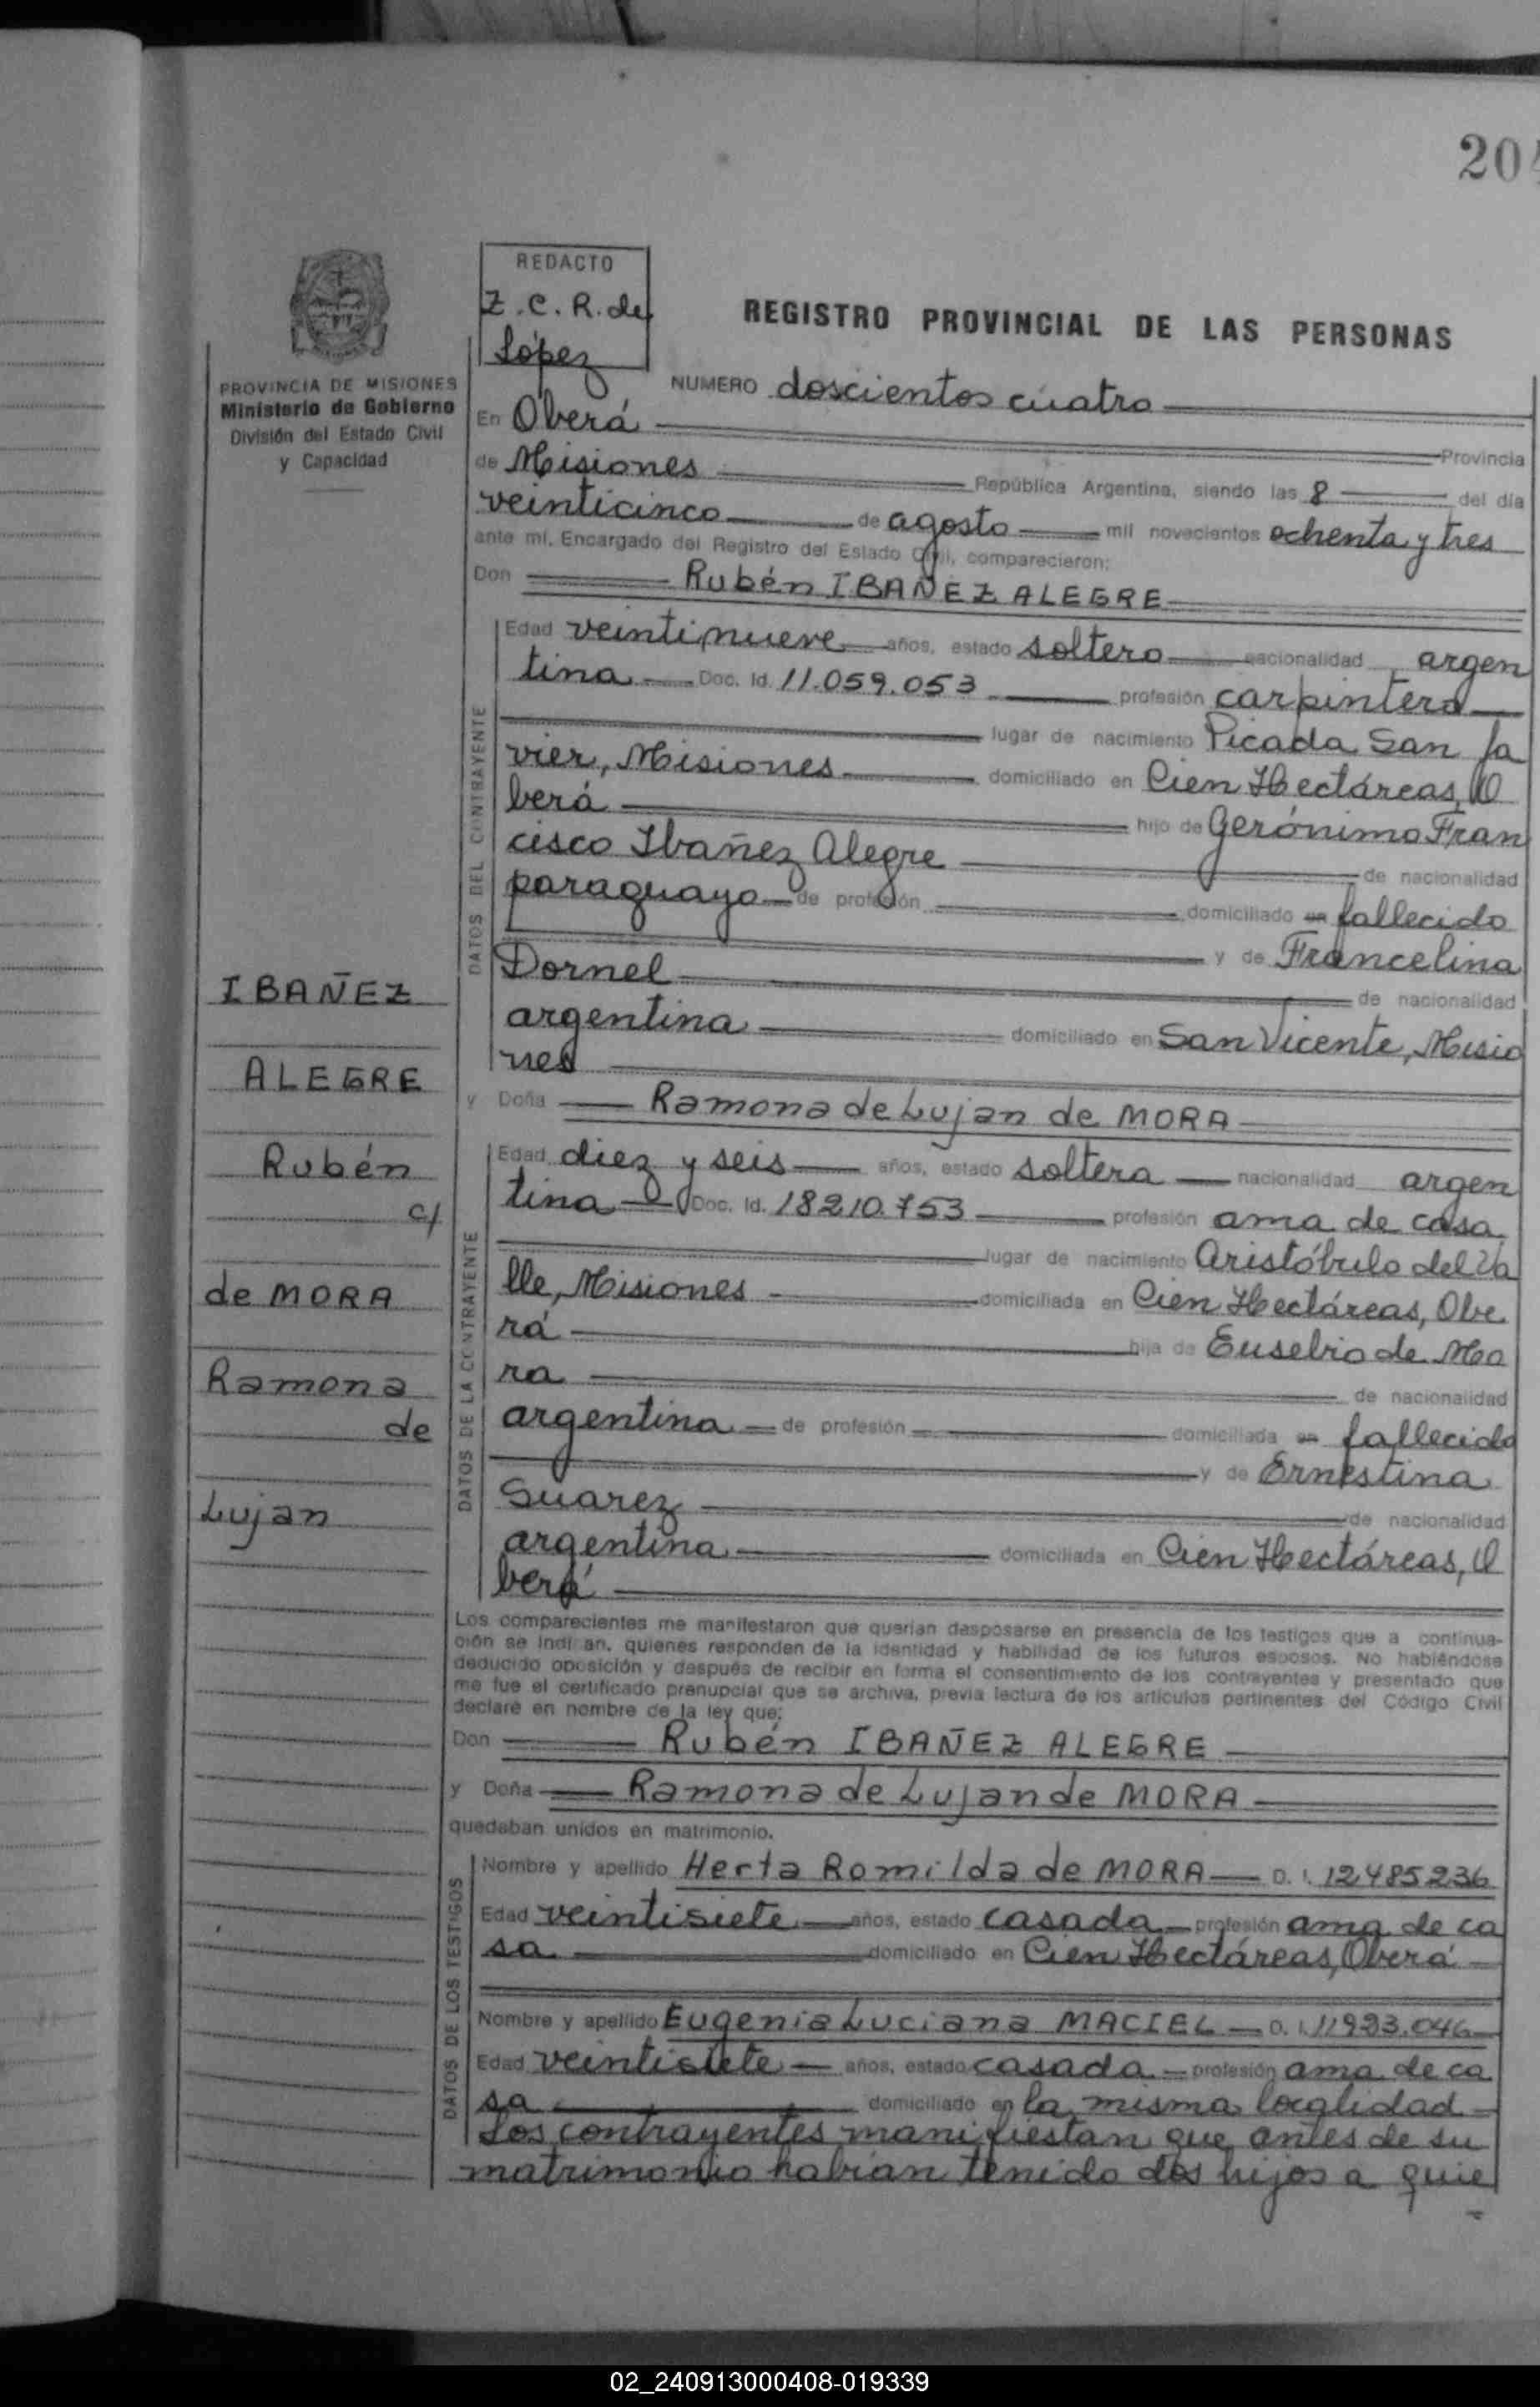 204
REDACTO
Z.C.R. de
López
REGISTRO PROVINCIAL DE LAS PERSONAS
PROVINCIA DE MISIONES
Ministerio de Gobierno
División del Estado Civil
y Capacidad
NUMERO doscientos cuatro
En Oberá Provincia
de Misiones República Argentina, siendo las 8 del día
veinticinco de agosto mil novecientos ochenta y tres
ante mí, Encargado del Registro del Estado Civil, comparecieron:
Don Rubén IBAÑEZ ALEGRE
DATOS DEL CONTRAYENTE
Edad veintinueve años, estado soltero nacionalidad argen
tina Doc. Id. 11.059.053 profesión carpintero
lugar de nacimiento Picada San Ja
vier, Misiones domiciliado en Cien Hectáreas, O
berá hijo de Gerónimo Fran
cisco Ibañez Alegre de nacionalidad
paraguayo de profesión domiciliado en fallecido
y de Francelina
Dornel de nacionalidad
argentina domiciliado en San Vicente, Misio
nes
y Doña Ramona de Lujan de MORA
DATOS DE LA CONTRAYENTE
Edad diez y seis años, estado soltera nacionalidad argen
tina Doc. Id. 18210.753 profesión ama de casa
lugar de nacimiento Aristóbulo del Va
lle, Misiones domiciliada en Cien Hectáreas, Obe
rá hija de Eusebio de Mo
ra de nacionalidad
argentina de profesión domiciliada en fallecido
y de Ernestina
Suarez de nacionalidad
argentina domiciliada en Cien Hectáreas, O
berá
IBAÑEZ
ALEGRE
Rubén
c/
de MORA
Ramona
de
Lujan
Los comparecientes me manifestaron que querían desposarse en presencia de los testigos que a continua-
ción se indi an, quienes responden de la identidad y habilidad de los futuros esposos. No habiéndose
deducido oposición y después de recibir en forma el consentimiento de los contrayentes y presentado que
me fue el certificado prenupcial que se archiva, previa lectura de los artículos pertinentes del Código Civil
declaré en nombre de la ley que:
Don Rubén IBAÑEZ ALEGRE
y Doña Ramona de Lujan de MORA
quedaban unidos en matrimonio.
DATOS DE LOS TESTIGOS
Nombre y apellido Herta Romilda de MORA D. I. 12485236
Edad veintisiete años, estado casada profesión ama de ca
sa domiciliado en Cien Hectáreas, Oberá
Nombre y apellido Eugenia Luciana MACIEL D. I. 11923.046
Edad veintisiete años, estado casada profesión ama de ca
sa domiciliado en la misma localidad
Los contrayentes manifiestan que antes de su
matrimonio habían tenido dos hijos a quie
02_240913000408-019339